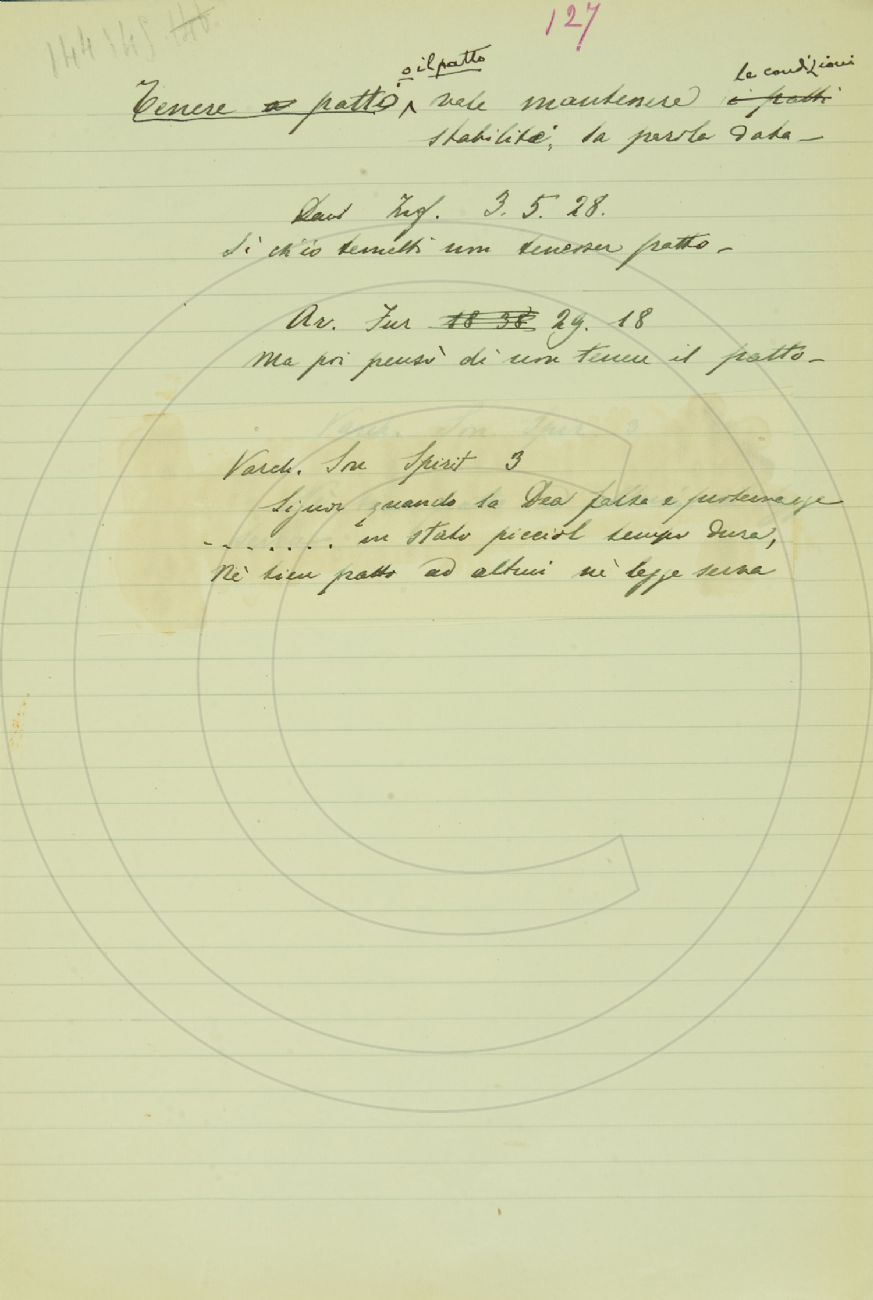 127
144 145
o il patto le condizioni
Tenere a patto, vale mantenere i patti
stabilite, la parola data —
Dant Inf. 3. 5. 28.
Sì ch'io temetti non tenesser patto —
Ar. Fur 18 38 29. 18
Ma poi pensò di non tener il patto —
Varch. Son Spirit 3
Signor quando la Dea falsa e proterva
. . . . . . . in stato picciol tempo dura,
Nè tien patto ad altrui nè legge serva